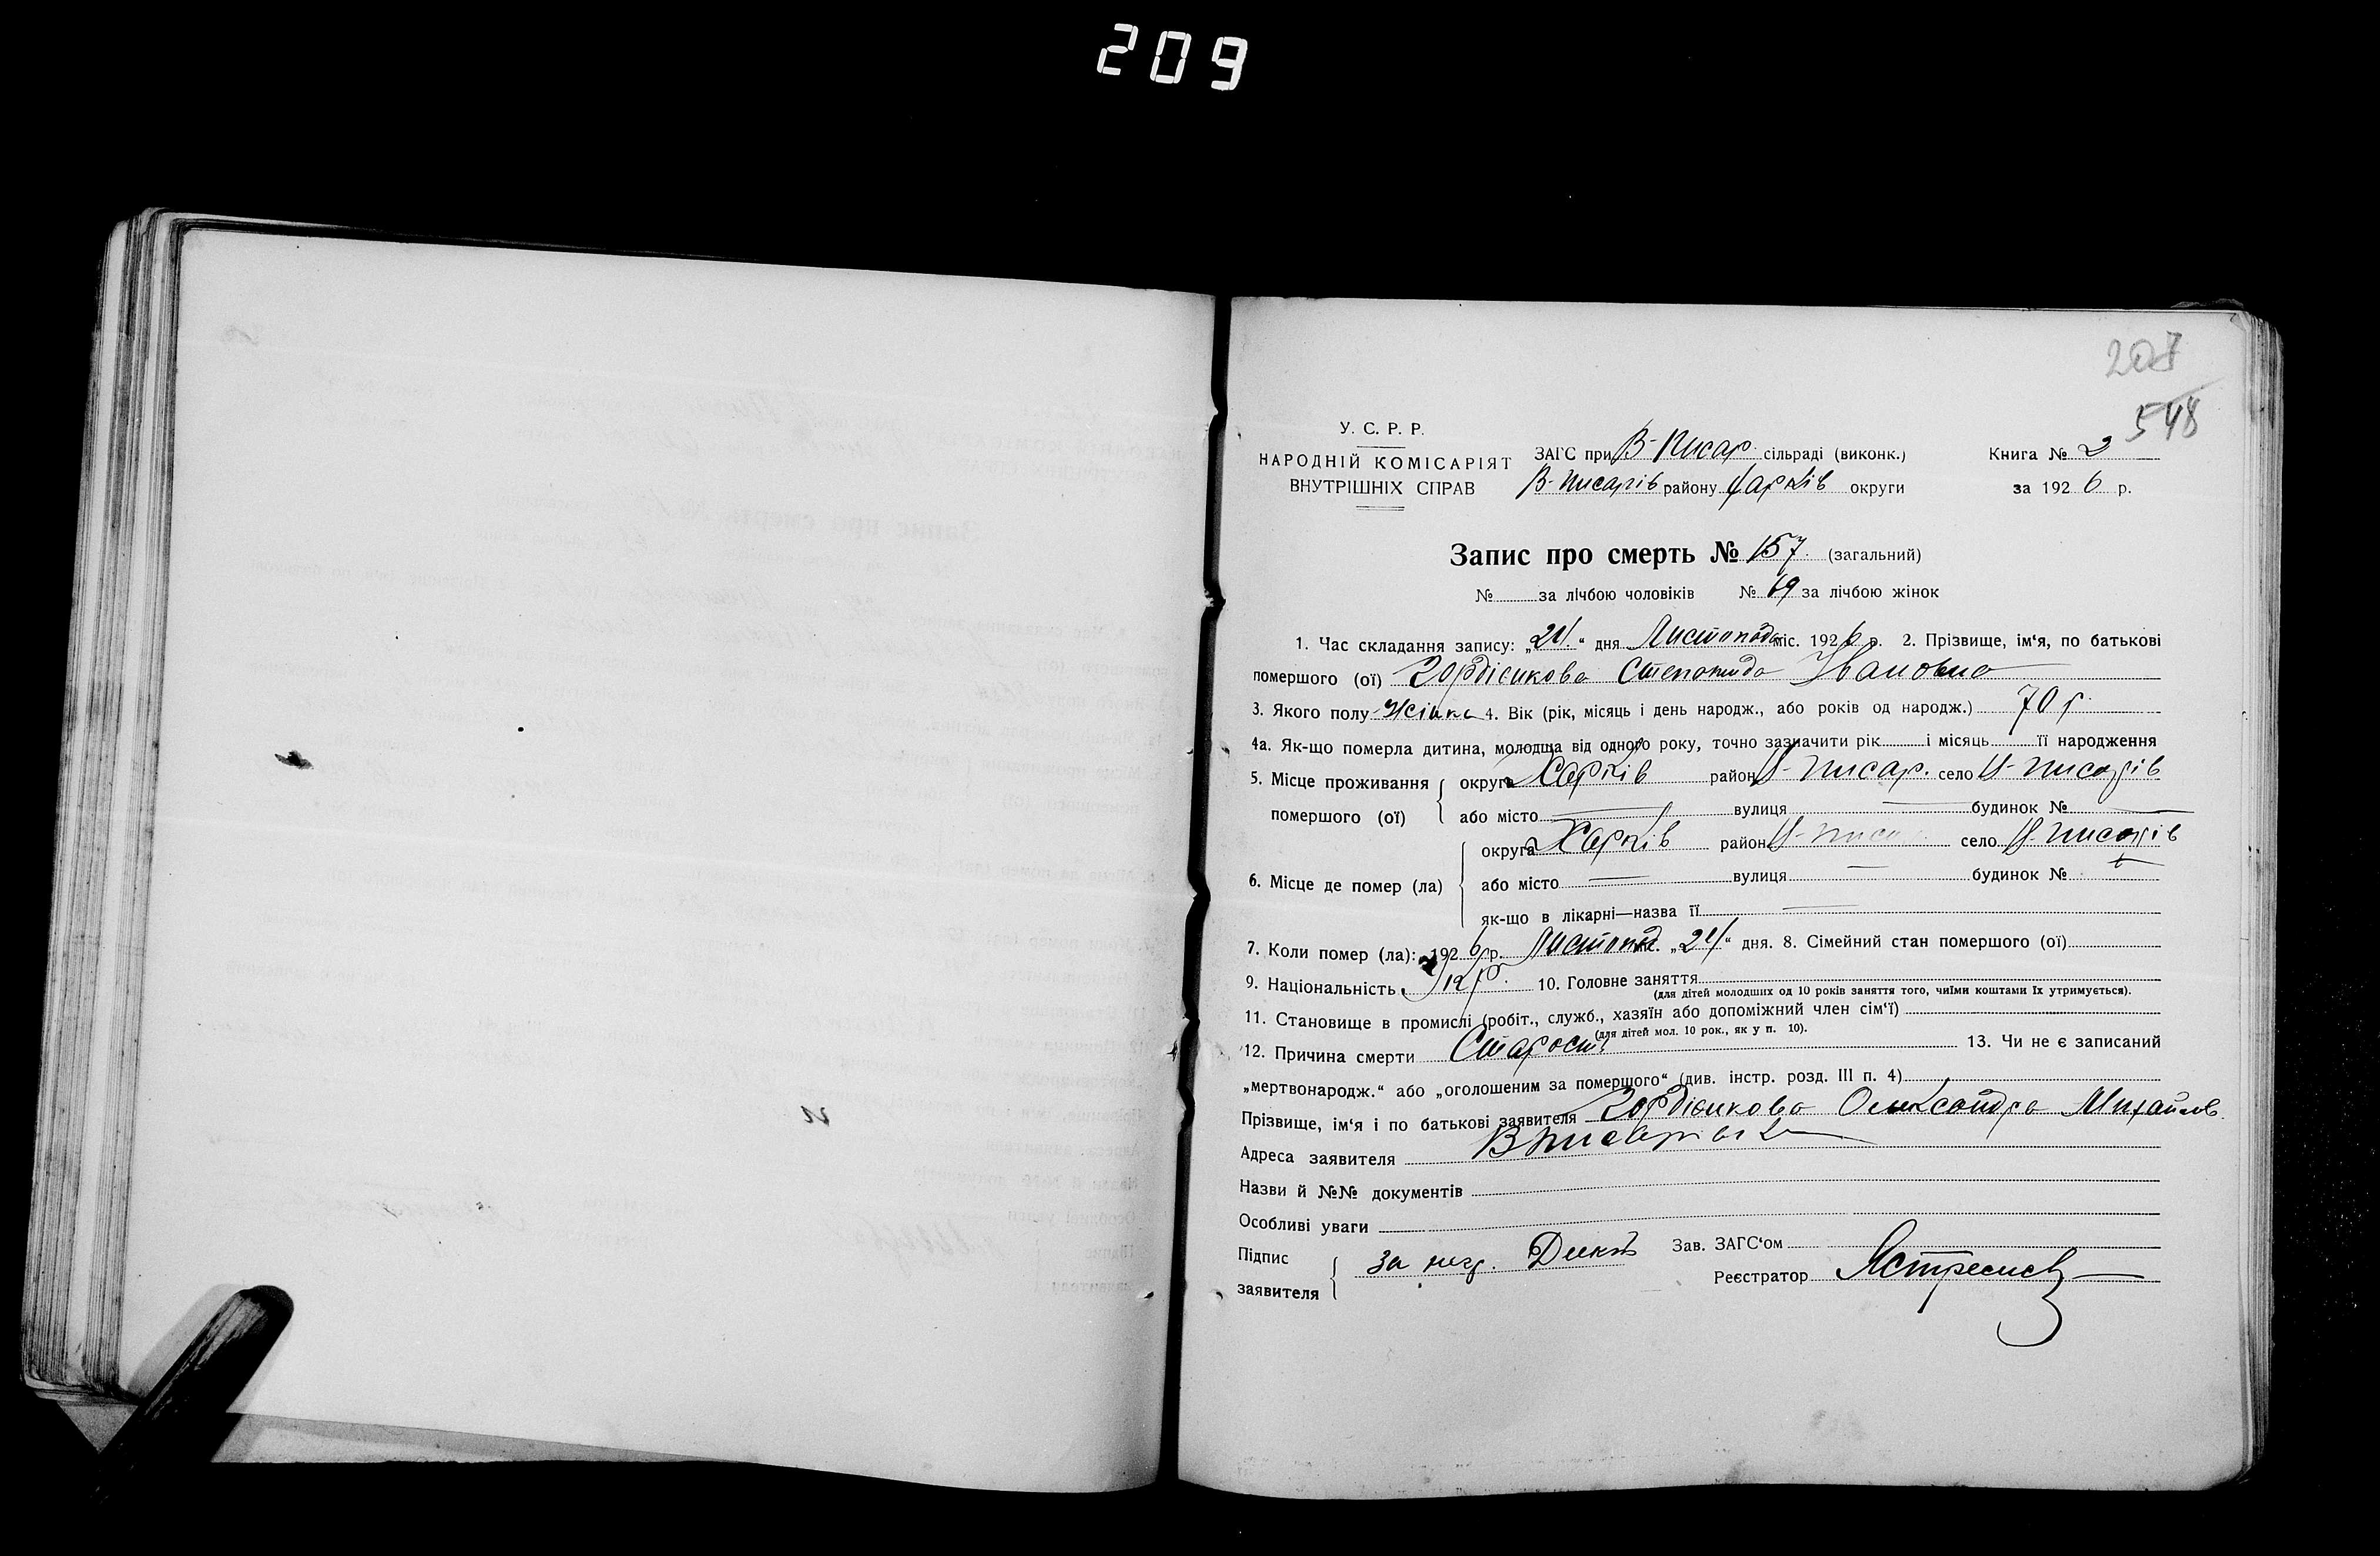 209
207
548
У. С. Р. Р.
НАРОДНІЙ КОМІСАРІЯТ
ВНУТРІШНІХ СПРАВ
ЗАГС при В-Писар. сільраді (виконк.) Книга № 2
В-Писарів району Харків округи за 1926 р.
Запис про смерть № 157. (загальний)
№ за лічбою чоловіків № 69 за лічбою жінок
1. Час складання запису: „24“ дня Листопада міс. 1926 р. 2. Прізвище, ім‘я, по батькові
помершого (ої) Гордієнкова Степанида Івановна
3. Якого полу Жінка 4. Вік (рік, місяць і день народж., або років од народж.) 70 р.
4а. Як-що померла дитина, молодща від одного року, точно зазначити рік і місяць її народження
5. Місце проживання помершого (ої)
округа Харків район писар. село писарів
або місто — вулиця — будинок № —
6. Місце де помер (ла)
округа Харків район село писарів
або місто — вулиця — будинок № —
як-що в лікарні—назва її —
7. Коли помер (ла): 1926 р. Листопад міс. „24“ дня. 8. Сімейний стан помершого (ої)
9. Національність Укр. 10. Головне заняття
(для дітей молодших од 10 років заняття того, чиїми коштами їх утримується).
11. Становище в промислі (робіт., служб., хазяїн або допоміжний член сім‘ї)
(для дітей мол. 10 рок., як у п. 10).
12. Причина смерти Старость 13. Чи не є записаний
„мертвонародж.“ або „оголошеним за помершого“ (див. інстр. розд. III п. 4)
Прізвище, ім‘я і по батькові заявителя Гордієнкова Олександра Михайлов.
Адреса заявителя
Назви й №№ документів
Особливі уваги
Підпис заявителя За негр. Зав. ЗАГС‘ом
Реєстратор